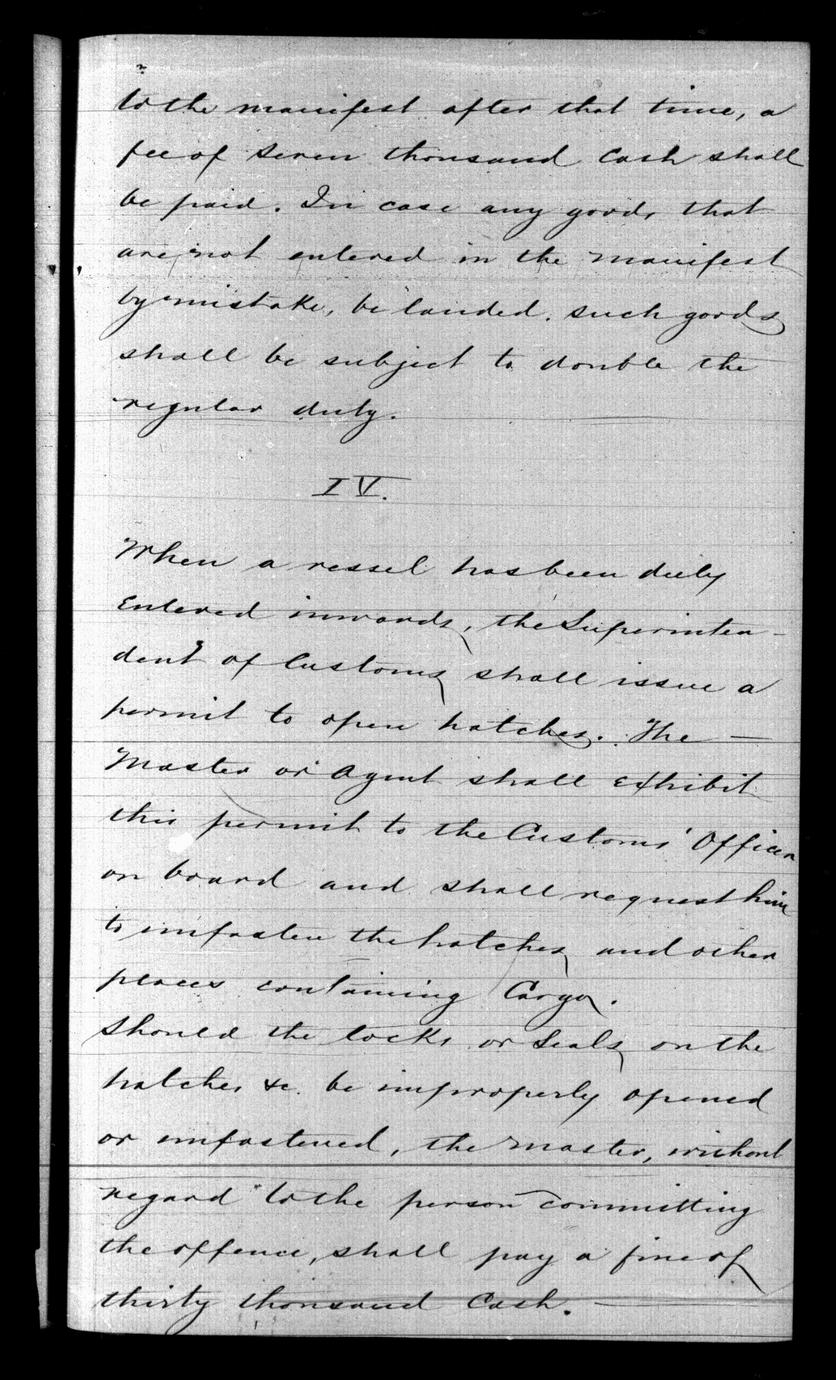 to the manifest after that time, a
fee of seven thousand cash shall
be paid. In case any goods that
are not entered in the manifest
by mistake, be landed. such goods
shall be subject to double the
regular duty.
IV.
When a vessel has been duly
entered inwards, the Superinten-
dent of Customs shall issue a
permit to open hatches. The —
Master or Agent shall exhibit
this permit to the Customs' Officer
on board and shall request him
to unfasten the hatches and other
places containing Cargo.
Should the locks or Seals on the
hatches &c. be improperly opened
or unfastened, the Master, without
regard to the person committing
the offence, shall pay a fine of
thirty thousand Cash. —